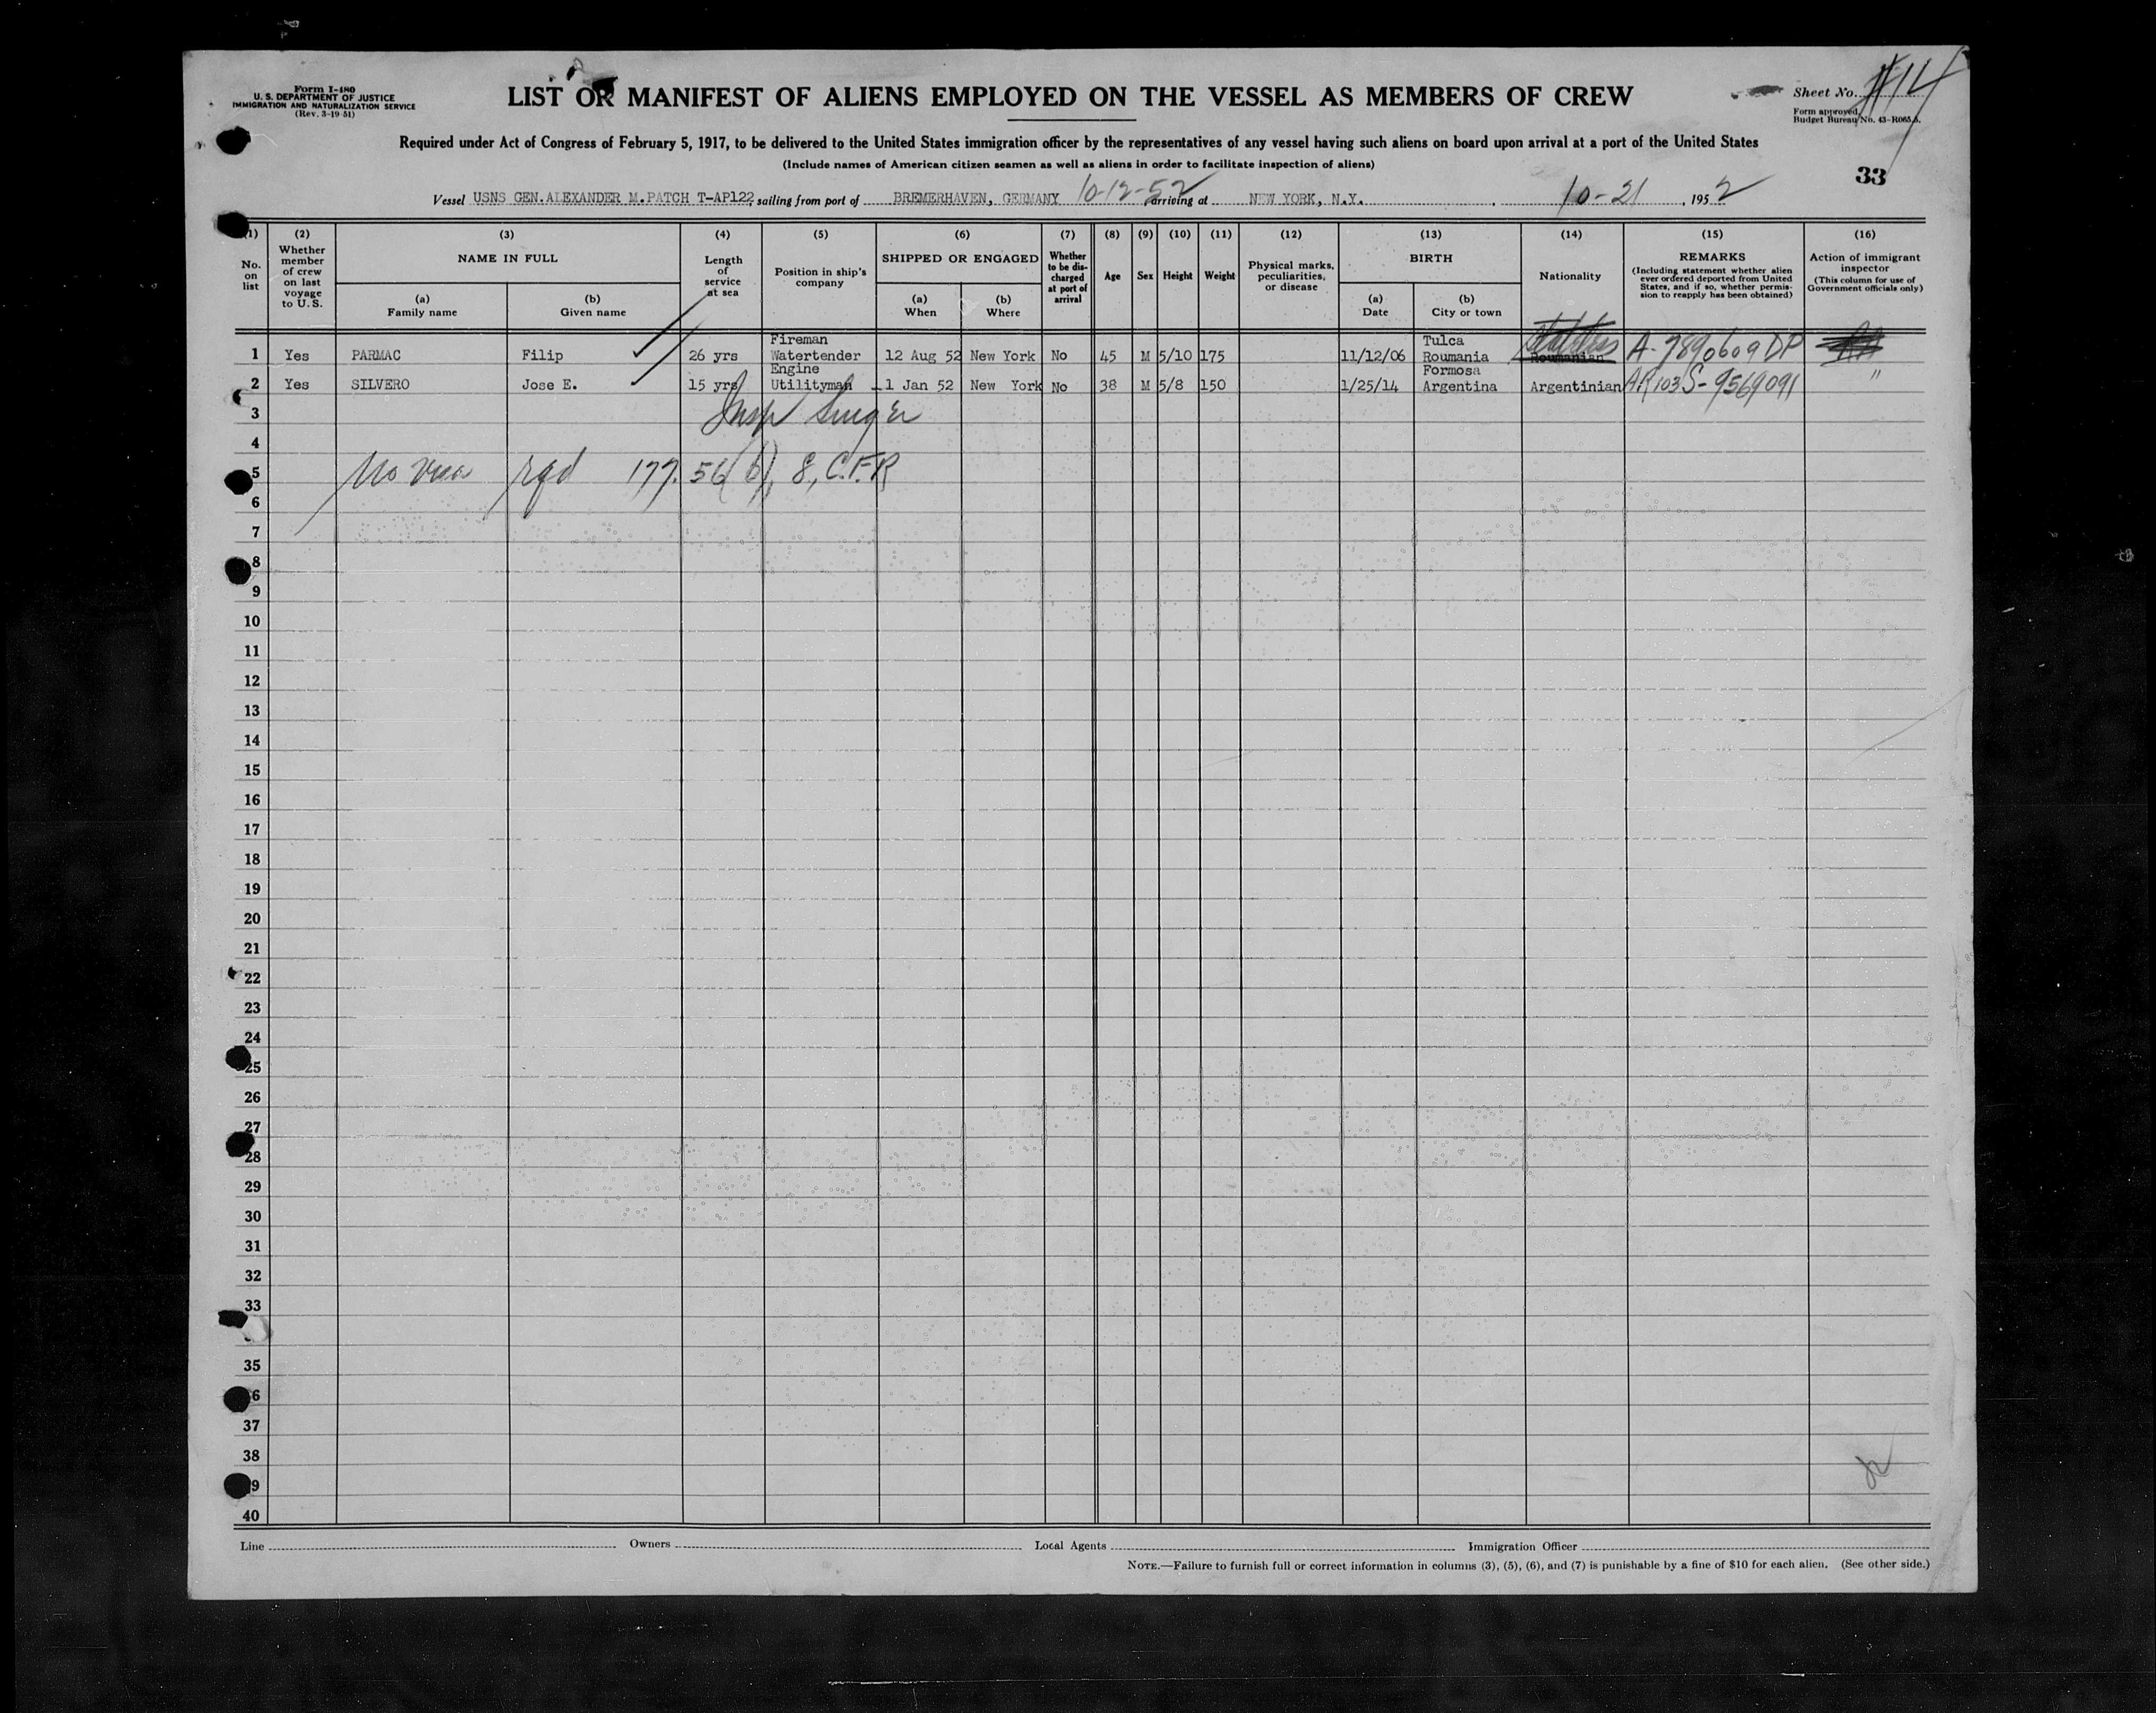 Form I-480
U. S. DEPARTMENT OF JUSTICE
IMMIGRATION AND NATURALIZATION SERVICE
(Rev. 3-19-51)
LIST OR MANIFEST OF ALIENS EMPLOYED ON THE VESSEL AS MEMBERS OF CREW
Sheet No. #14
Form approved.
Budget Bureau No. 43-R065.
Required under Act of Congress of February 5, 1917, to be delivered to the United States immigration officer by the representatives of any vessel having such aliens on board upon arrival at a port of the United States
(Include names of American citizen seamen as well as aliens in order to facilitate inspection of aliens)
33
Vessel USNS GEN.ALEXANDER M.PATCH T-AP122, sailing from port of BREMERHAVEN, GERMANY 10-12-52 arriving at NEW YORK, N.Y. 10-21, 1952
(1) (2) (3) (4) (5) (6) (7) (8) (9) (10) (11) (12) (13) (14) (15) (16)
No. on list
Whether member of crew on last voyage to U. S.
NAME IN FULL
(a) Family name
(b) Given name
Length of service at sea
Position in ship's company
SHIPPED OR ENGAGED
(a) When
(b) Where
Whether to be discharged at port of arrival
Age
Sex
Height
Weight
Physical marks, peculiarities, or disease
BIRTH
(a) Date
(b) City or town
Nationality
REMARKS
(Including statement whether alien ever ordered deported from United States, and if so, whether permission to reapply has been obtained)
Action of immigrant inspector
(This column for use of Government officials only)
1 Yes PARMAC Filip 26 yrs Fireman Watertender 12 Aug 52 New York No 45 M 5/10 175 11/12/06 Tulca Roumania Roumanian A-7890609 DP
2 Yes SILVERO Jose E. 15 yrs Engine Utilityman 1 Jan 52 New York No 38 M 5/8 150 1/25/14 Formosa Argentina Argentinian AR103 S-9569091 "
3 Insp Singer
4
5 No visa rqd 177.56(b), 8, C.F.R
6
7
8
9
10
11
12
13
14
15
16
17
18
19
20
21
22
23
24
25
26
27
28
29
30
31
32
33
35
36
37
38
39
40
Line Owners Local Agents Immigration Officer
NOTE.—Failure to furnish full or correct information in columns (3), (5), (6), and (7) is punishable by a fine of $10 for each alien. (See other side.)